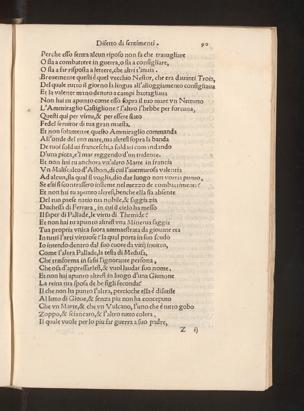 Difetto di sentimenti. 90
Perche esso senza alcun riposo non fa che trauagliare
O sia a combattere in guerra, o sia a consigliare,
O sia a far risposta a lettere, che altri t'inuia.
Breuemente questi è quel vecchio Nestor, che era dauanti Troia,
Del quale tutto il giorno la lingua all'alloggiamento consigliaua
Et la valente mano dentro a campi battagliaua
Non hai tu apunto come esso sopra il tuo mare vn Nettuno
L'Ammiraglio Castiglione? l'altro l'hebbe per fortuna,
Questi qui per virtu, & per essere stato
Fedel seruitor di tua gran maesta.
Et non solamente questo Ammiraglio commanda
All'onde del tuo mare, ma altresi sopra la banda
De tuoi soldati franceschi, a soldati comandando
D'una picca, e'l mar reggendo d'un tridente.
Et non hai tu anchora vn'altro Marte in francia
Vn Maliscalco d'Albon, di cui l'auenturosa valentia
Ad alcun, sia qual si voglia, dio dar luogo non vorria punto,
Se essi si scontrassero insieme nel mezzo de combattimenti?
Et non hai tu apunto altresi, benche ella sia absente
Del tuo paese natio tua nobile, & saggia zia
Duchessa di Ferrara, in cui il cielo ha messo
Il saper di Pallade, le virtu di Themide?
Et non hai tu apunto altresi vna Minerua saggia
Tua propria vnica suora ammaestrata da giouane eta
In tutti l'arti virtuose? la qual porta in suo scudo
Io intendo dentro dal suo cuore da vitij inuitto,
Come l'altra Pallade, la testa di Medusa,
Che trasforma in sassi l'ignorante persona,
Che osa d'appressarlesi, & vuol laudar suo nome,
Et non hai apunto altresi in luogo d'una Giunone
La reina tua sposa de be figli seconda?
Il che non ha punto l'altra, percioche ella è disutile
Al letto di Gioue, & senza piu non ha conceputo
Che vn Marte, & che vn Vulcano, l'uno che è tutto gobo
Zoppo, & sciancato, & l'altro tutto colera,
Il quale vuole per lo piu far guerra a suo padre,
Z ij